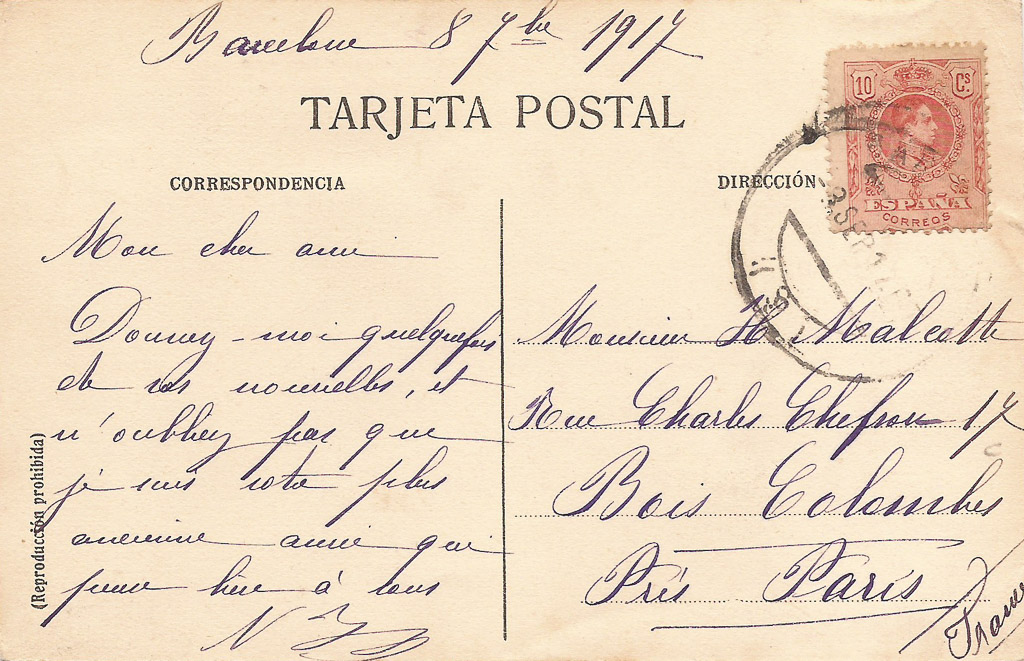 Barcelone 8 7bre 1917
TARJETA POSTAL
10 Cs
ESPAÑA
CORREOS
CORRESPONDENCIA
DIRECCIÓN
Mon cher ami
Donnez-moi quelquefois
de vos nouvelles, et
n'oubliez pas que
je suis votre plus
ancienne amie qui
pense bien à tous
Monsieur H Malcotte
Rue Charles Chefson 17
Bois Colombes
Près París
France
(Reproducción prohibida)